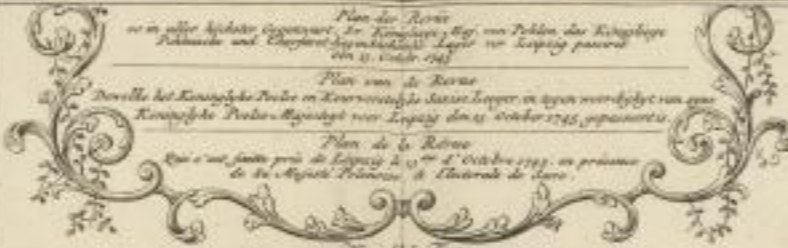 Plan der Revüe
so in aller höchster Gegenwart, Sr Königlichen Maj. von Pohlen das Königliche
Pohlnische und Lager vor Leipzig passiret
den 15. Octobr 1745
Plan van de Revue
Dewelke het Koninglyke Poolse en Keurvorstelyke Saxise Leeger, in tegenwoordigheyt van
Koninglyke Poolse Majesteyt voor Leipzig den 15 October 1745, gepasseert is.
Plan de la Revue
Qui s'est faitte près de Leipzig le d'Octobre 1745. en présence
de Sa Majesté Polonoise & Electorale de Saxe.